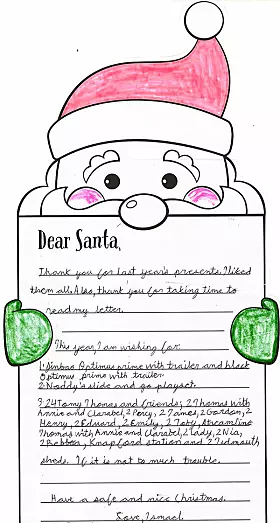 Dear Santa,
Thank you for last year's presents. I liked
them all. Also, thank you for taking time to
read my letter.
This year, I am wishing for:
1. Optimus prime with trailer and black
Optimus prime with trailer
2. Noddy's slide and go playset
3. 24 Tomy Thomas and friends; 2 Thomas with
Annie and Clarabel, 2 Percy, 2 James, 2 Gordon, 2
Henry, 2 Edward, 2 Emily, 2 Toby, Streamline
Thomas with Annie and Clarabel, 2 Lady, 2 Nia,
2 Rebecca, Knapford station and 2 Tidmouth
sheds. If it is not to much trouble.
Have a safe and nice Christmas.
Love, Ismael